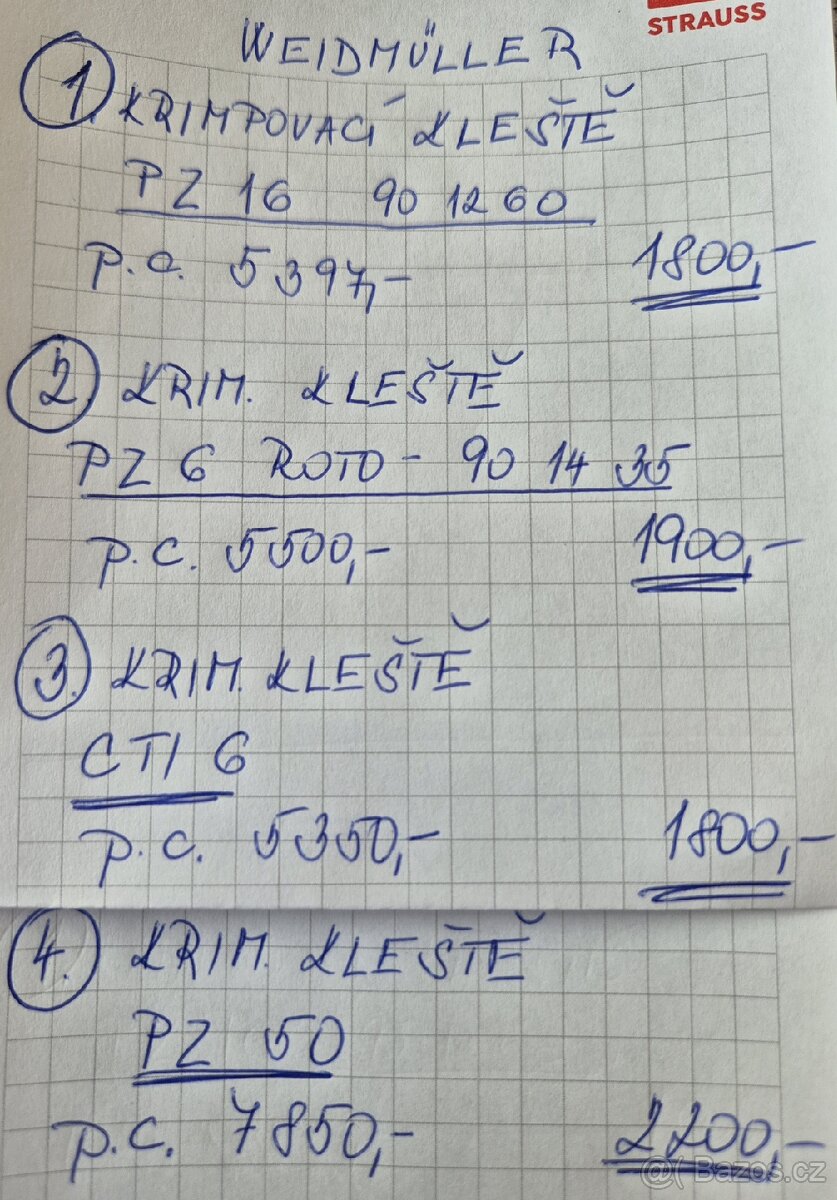 STRAUSS
WEIDMÜLLER
1. KRIMPOVACÍ KLEŠTĚ
PZ 16 90 12 60
p.c. 5397,- 1800,-
2. KRIM. KLEŠTĚ
PZ 6 ROTO - 90 14 35
p.c. 5500,- 1900,-
3. KRIM. KLEŠTĚ
CTI 6
p.c. 5350,- 1800,-
4. KRIM. KLEŠTĚ
PZ 50
p.c. 7850,- 2200,-
Bazos.cz